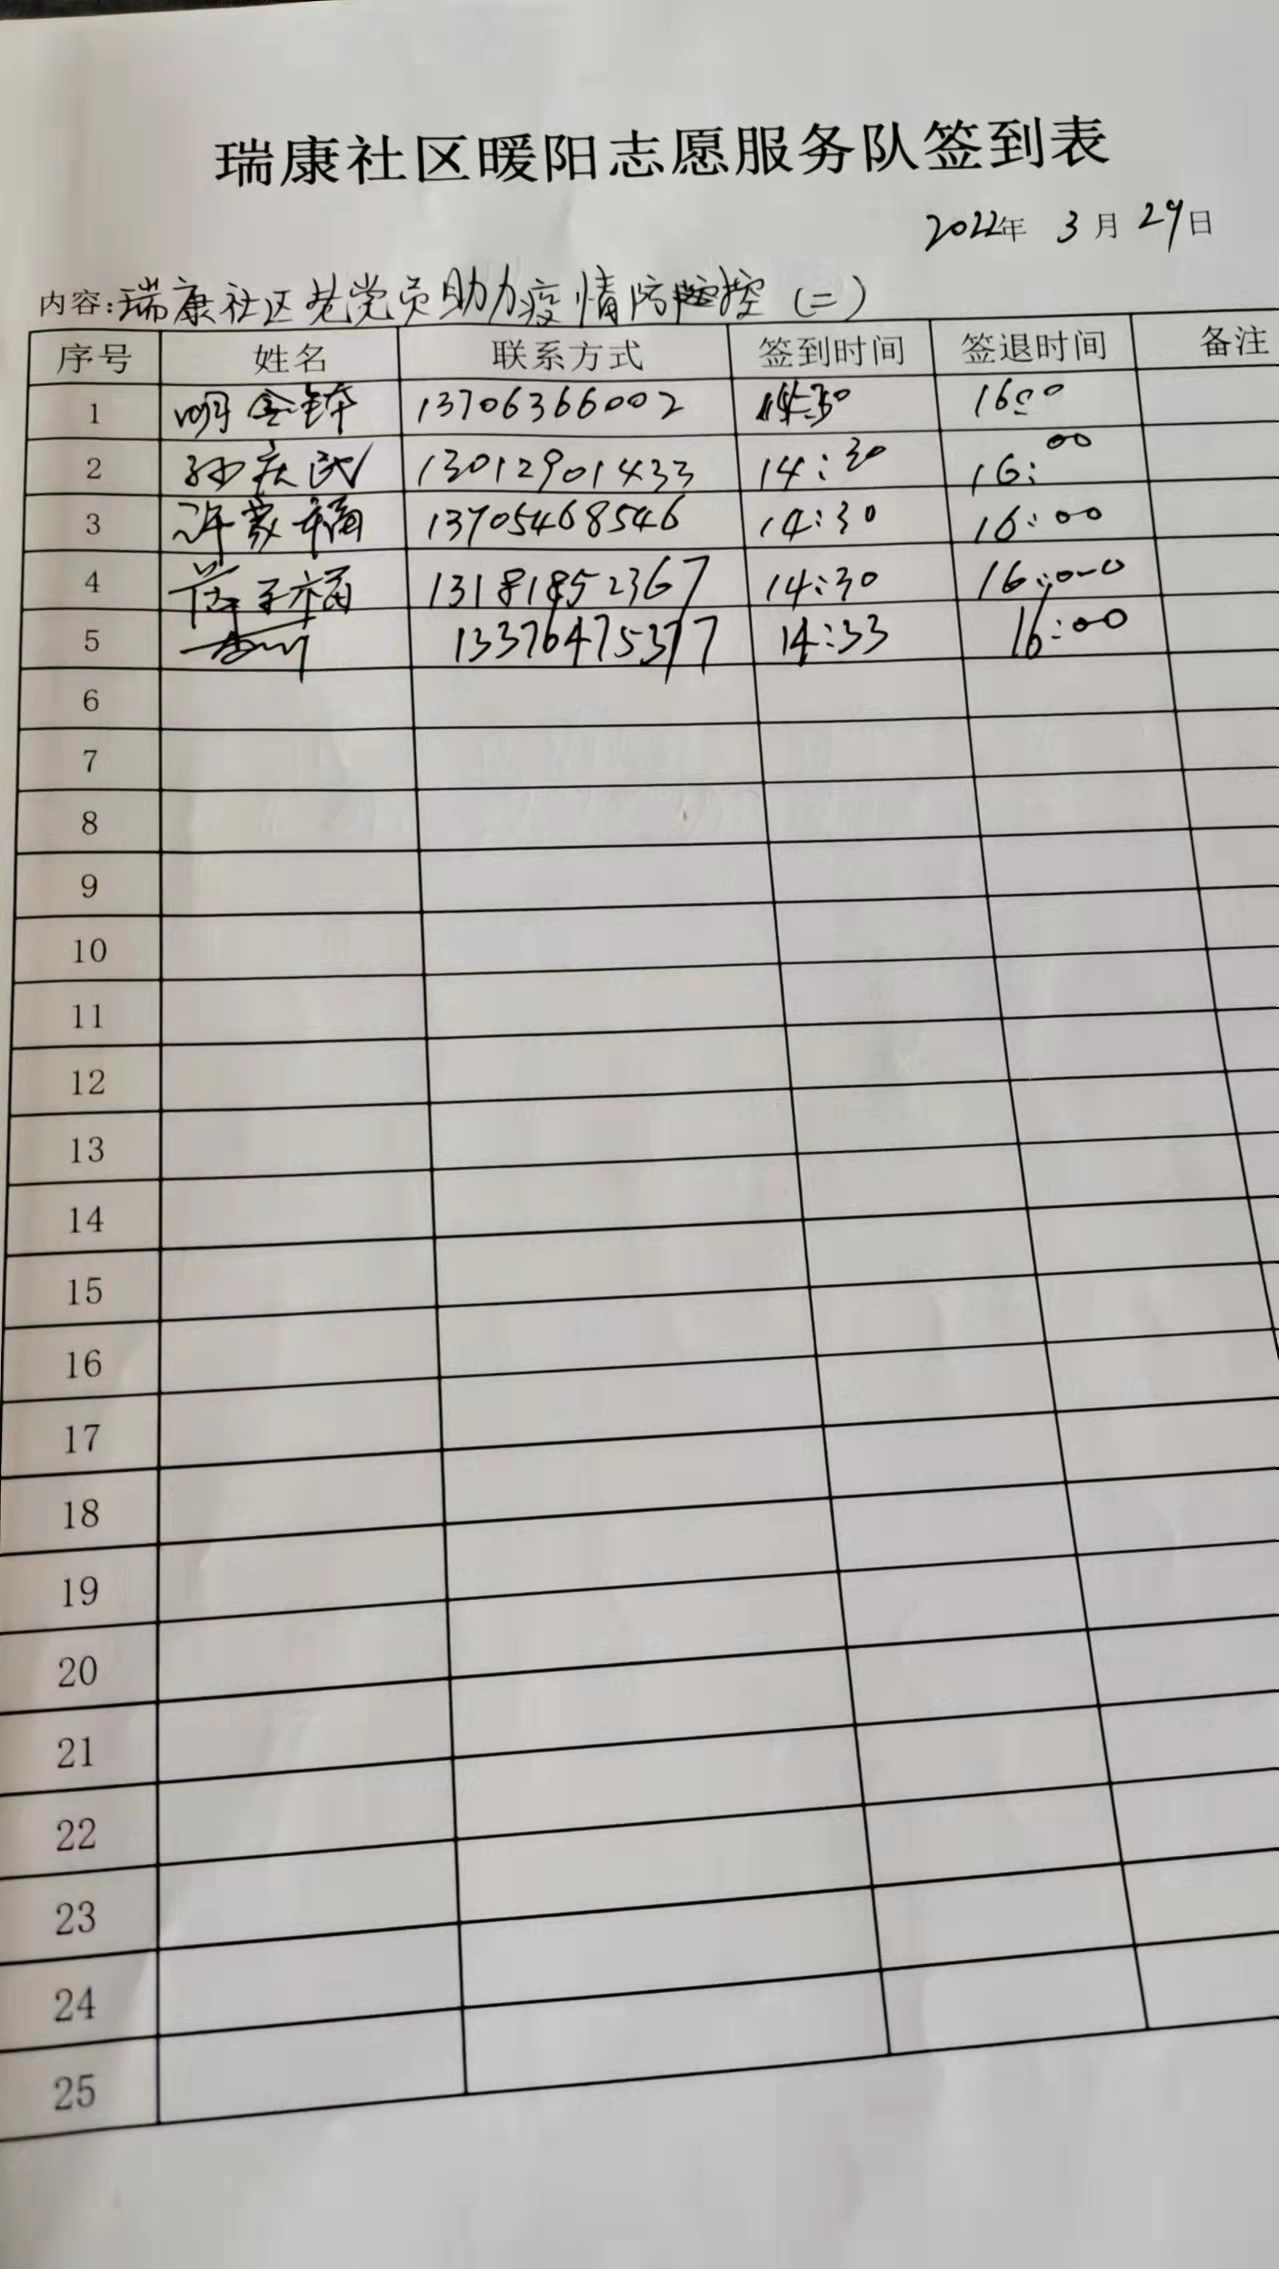 瑞康社区暖阳志愿服务队签到表
2022年 3月 29日
内容:瑞康社区老党员助力疫情防控(二)
序号 姓名 联系方式 签到时间 签退时间 备注
1 明金钵 13706366002 14:30 16:00
2 孙庆武 13012901433 14:30 16:00
3 许家福 13705468546 14:30 16:00
4 薛子福 13181852367 14:30 16:00
5 13376475377 14:33 16:00
6
7
8
9
10
11
12
13
14
15
16
17
18
19
20
21
22
23
24
25